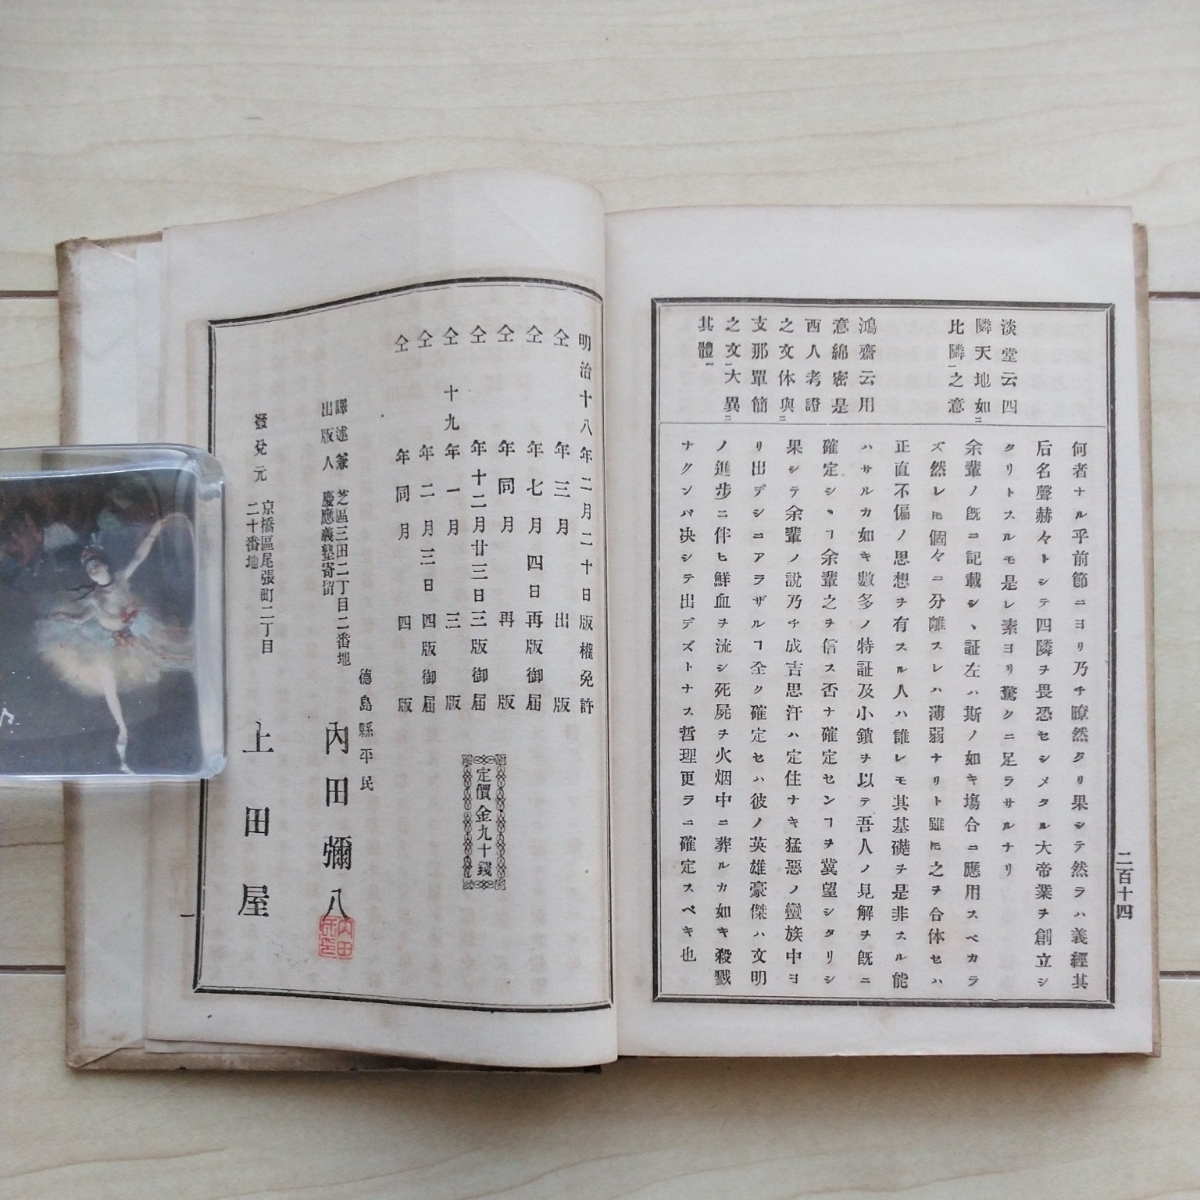 淡堂云四
隣天地如ニ
比隣一之意
鴻齋云用
意綿密是
西人考證
之文体與ニ
支那單簡
之文一大異ニ
其體一
何者ナル乎前節ニヨリ乃チ瞭然タリ果シテ然ラハ義經其
后名聲赫々トシテ四隣ヲ畏恐セシメタル大帝業ヲ創立シ
タリトスルモ是レ素ヨリ驚クニ足ラサルナリ
余輩ノ既ニ記載シヽ証左ハ斯ノ如キ塲合ニ應用スベカラ
ズ然レ𪜈個々ニ分離スレハ薄弱ナリト雖𪜈之ヲ合体セハ
正直不偏ノ思想ヲ有スル人ハ誰レモ其基礎ヲ是非スル能
ハサルカ如キ數多ノ特証及小鎖ヲ以テ吾人ノ見解ヲ既ニ
確定シヽヿ余輩之ヲ信ス否ナ確定センヿヲ冀望シタリシ
果シテ余輩ノ説乃チ成吉思汗ハ定住ナキ猛惡ノ蠻族中ヨ
リ出デシニアラザルヿ全ク確定セハ彼ノ英雄豪傑ハ文明
ノ進步ニ伴ヒ鮮血ヲ流シ死屍ヲ火烟中ニ葬ルカ如キ殺戮
ナクンバ决シテ出デズトナス哲理更ラニ確定スベキ也
二百十四
明治十八年二月二十日版權免許
仝年三月出版
仝年七月四日再版御届
仝年同月再版
仝年十二月廿三日三版御届
仝十九年一月三版
仝年二月三日四版御届
仝年同月四版
定價金九十錢
德島縣平民
譯述兼
出版人
內田彌八
芝區三田二丁目二番地
慶應義塾寄留
發兌元
上田屋
京橋區尾張町二丁目
二十番地